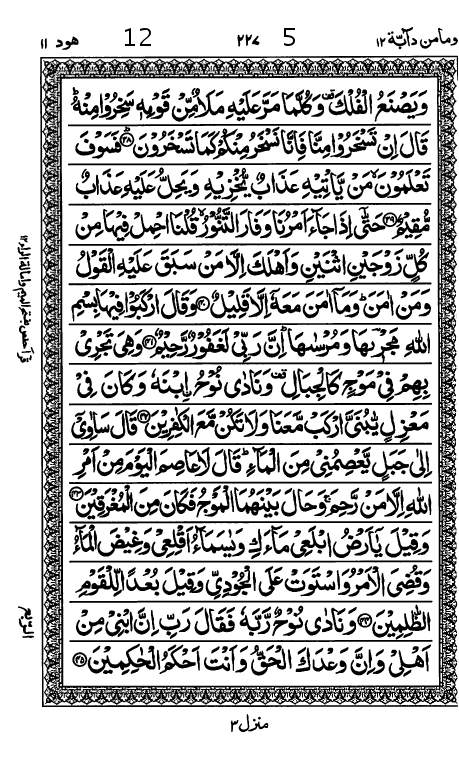 ومامن دآبّة ١٢ 5 ٢٢٧ 12 هود ١١
وَيَصْنَعُ الْفُلْكَ ۟ وَكُلَّمَا مَرَّ عَلَيْهِ مَلَاٌ مِّنْ قَوْمِهٖ سَخِرُوْا مِنْهُ ؕ
قَالَ اِنْ تَسْخَرُوْا مِنَّا فَاِنَّا نَسْخَرُ مِنْكُمْ كَمَا تَسْخَرُوْنَ ؕ۝۳۸ فَسَوْفَ
تَعْلَمُوْنَ ۙ مَنْ يَّاْتِيْهِ عَذَابٌ يُّخْزِيْهِ وَيَحِلُّ عَلَيْهِ عَذَابٌ
مُّقِيْمٌ ۝۳۹ حَتّٰۤى اِذَا جَآءَ اَمْرُنَا وَفَارَ التَّنُّوْرُ ۙ قُلْنَا احْمِلْ فِيْهَا مِنْ
كُلٍّ زَوْجَيْنِ اثْنَيْنِ وَاَهْلَكَ اِلَّا مَنْ سَبَقَ عَلَيْهِ الْقَوْلُ
وَمَنْ اٰمَنَ ؕ وَمَاۤ اٰمَنَ مَعَهٗۤ اِلَّا قَلِيْلٌ ۝۴۰ وَقَالَ ارْكَبُوْا فِيْهَا بِسْمِ
اللّٰهِ مَجْرٖىهَا وَمُرْسٰىهَا ؕ اِنَّ رَبِّيْ لَغَفُوْرٌ رَّحِيْمٌ ۝۴۱ وَهِيَ تَجْرِيْ
بِهِمْ فِيْ مَوْجٍ كَالْجِبَالِ ۟ وَنَادٰى نُوْحُ اِۨبْنَهٗ وَكَانَ فِيْ
مَعْزِلٍ يّٰبُنَيَّ ارْكَبْ مَّعَنَا وَلَا تَكُنْ مَّعَ الْكٰفِرِيْنَ ۝۴۲ قَالَ سَاٰوِيْۤ
اِلٰى جَبَلٍ يَّعْصِمُنِيْ مِنَ الْمَآءِ ؕ قَالَ لَا عَاصِمَ الْيَوْمَ مِنْ اَمْرِ
اللّٰهِ اِلَّا مَنْ رَّحِمَ ۚ وَحَالَ بَيْنَهُمَا الْمَوْجُ فَكَانَ مِنَ الْمُغْرَقِيْنَ ۝۴۳
وَقِيْلَ يٰۤاَرْضُ ابْلَعِيْ مَآءَكِ وَيٰسَمَآءُ اَقْلِعِيْ وَغِيْضَ الْمَآءُ
وَقُضِيَ الْاَمْرُ وَاسْتَوَتْ عَلَى الْجُوْدِيِّ وَقِيْلَ بُعْدًا لِّلْقَوْمِ
الظّٰلِمِيْنَ ۝۴۴ وَنَادٰى نُوْحٌ رَّبَّهٗ فَقَالَ رَبِّ اِنَّ ابْنِيْ مِنْ
اَهْلِيْ وَاِنَّ وَعْدَكَ الْحَقُّ وَاَنْتَ اَحْكَمُ الْحٰكِمِيْنَ ۝۴۵
الربع
منزل ٣